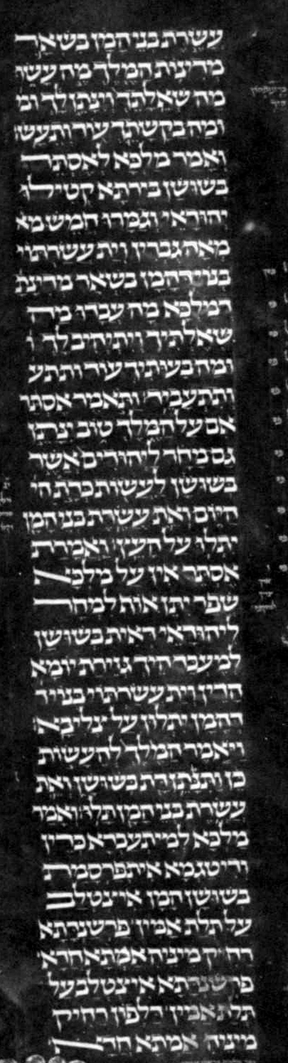 עשרת בני המן בשאר
מדינות המלך מה עשו
מה שאלתך וינתן לך ומ
ומה בקשתך עוד ותעש
ואמר מלכא לאסתר
בשושן בירתא קטילו
יהודאי וגמרו חמש מא
מאה גברין וית עשרתי
בנוי דהמן בשאר מדינת
דמלכא מה עברו מה
שאלתיך ויתיהיב לך ו
ומה בעותיך עוד ותתע
ותתעביד ותאמר אסתר
אם על המלך טוב ינתן
גם מחר ליהודים אשר
בשושן לעשות כדת הי
היום ואת עשרת בני המן
יתלו על העץ ואמרת
אסתר אין על מלכא
שפר יתן אות למחר
ליהודאי דאית בשושן
למעבד היך גזירת יומא
הדין וית עשרתי בנוי ד
דהמן יתלון על צליבא
ויאמר המלך להעשות
כן ותנתן דת בשושן ואת
עשרת בני המן תלו ואמר
מלכא למיתעבדא כדין
ודיטגמא איתפרסמת
בשושן המן איצטלב
על תלת אמין פרשנדתא
רחיק מיניה אמתא חדא
פרשנדתא איצטלב על
תלת אמין דלפון רחיק
מיניה אמתא חדא